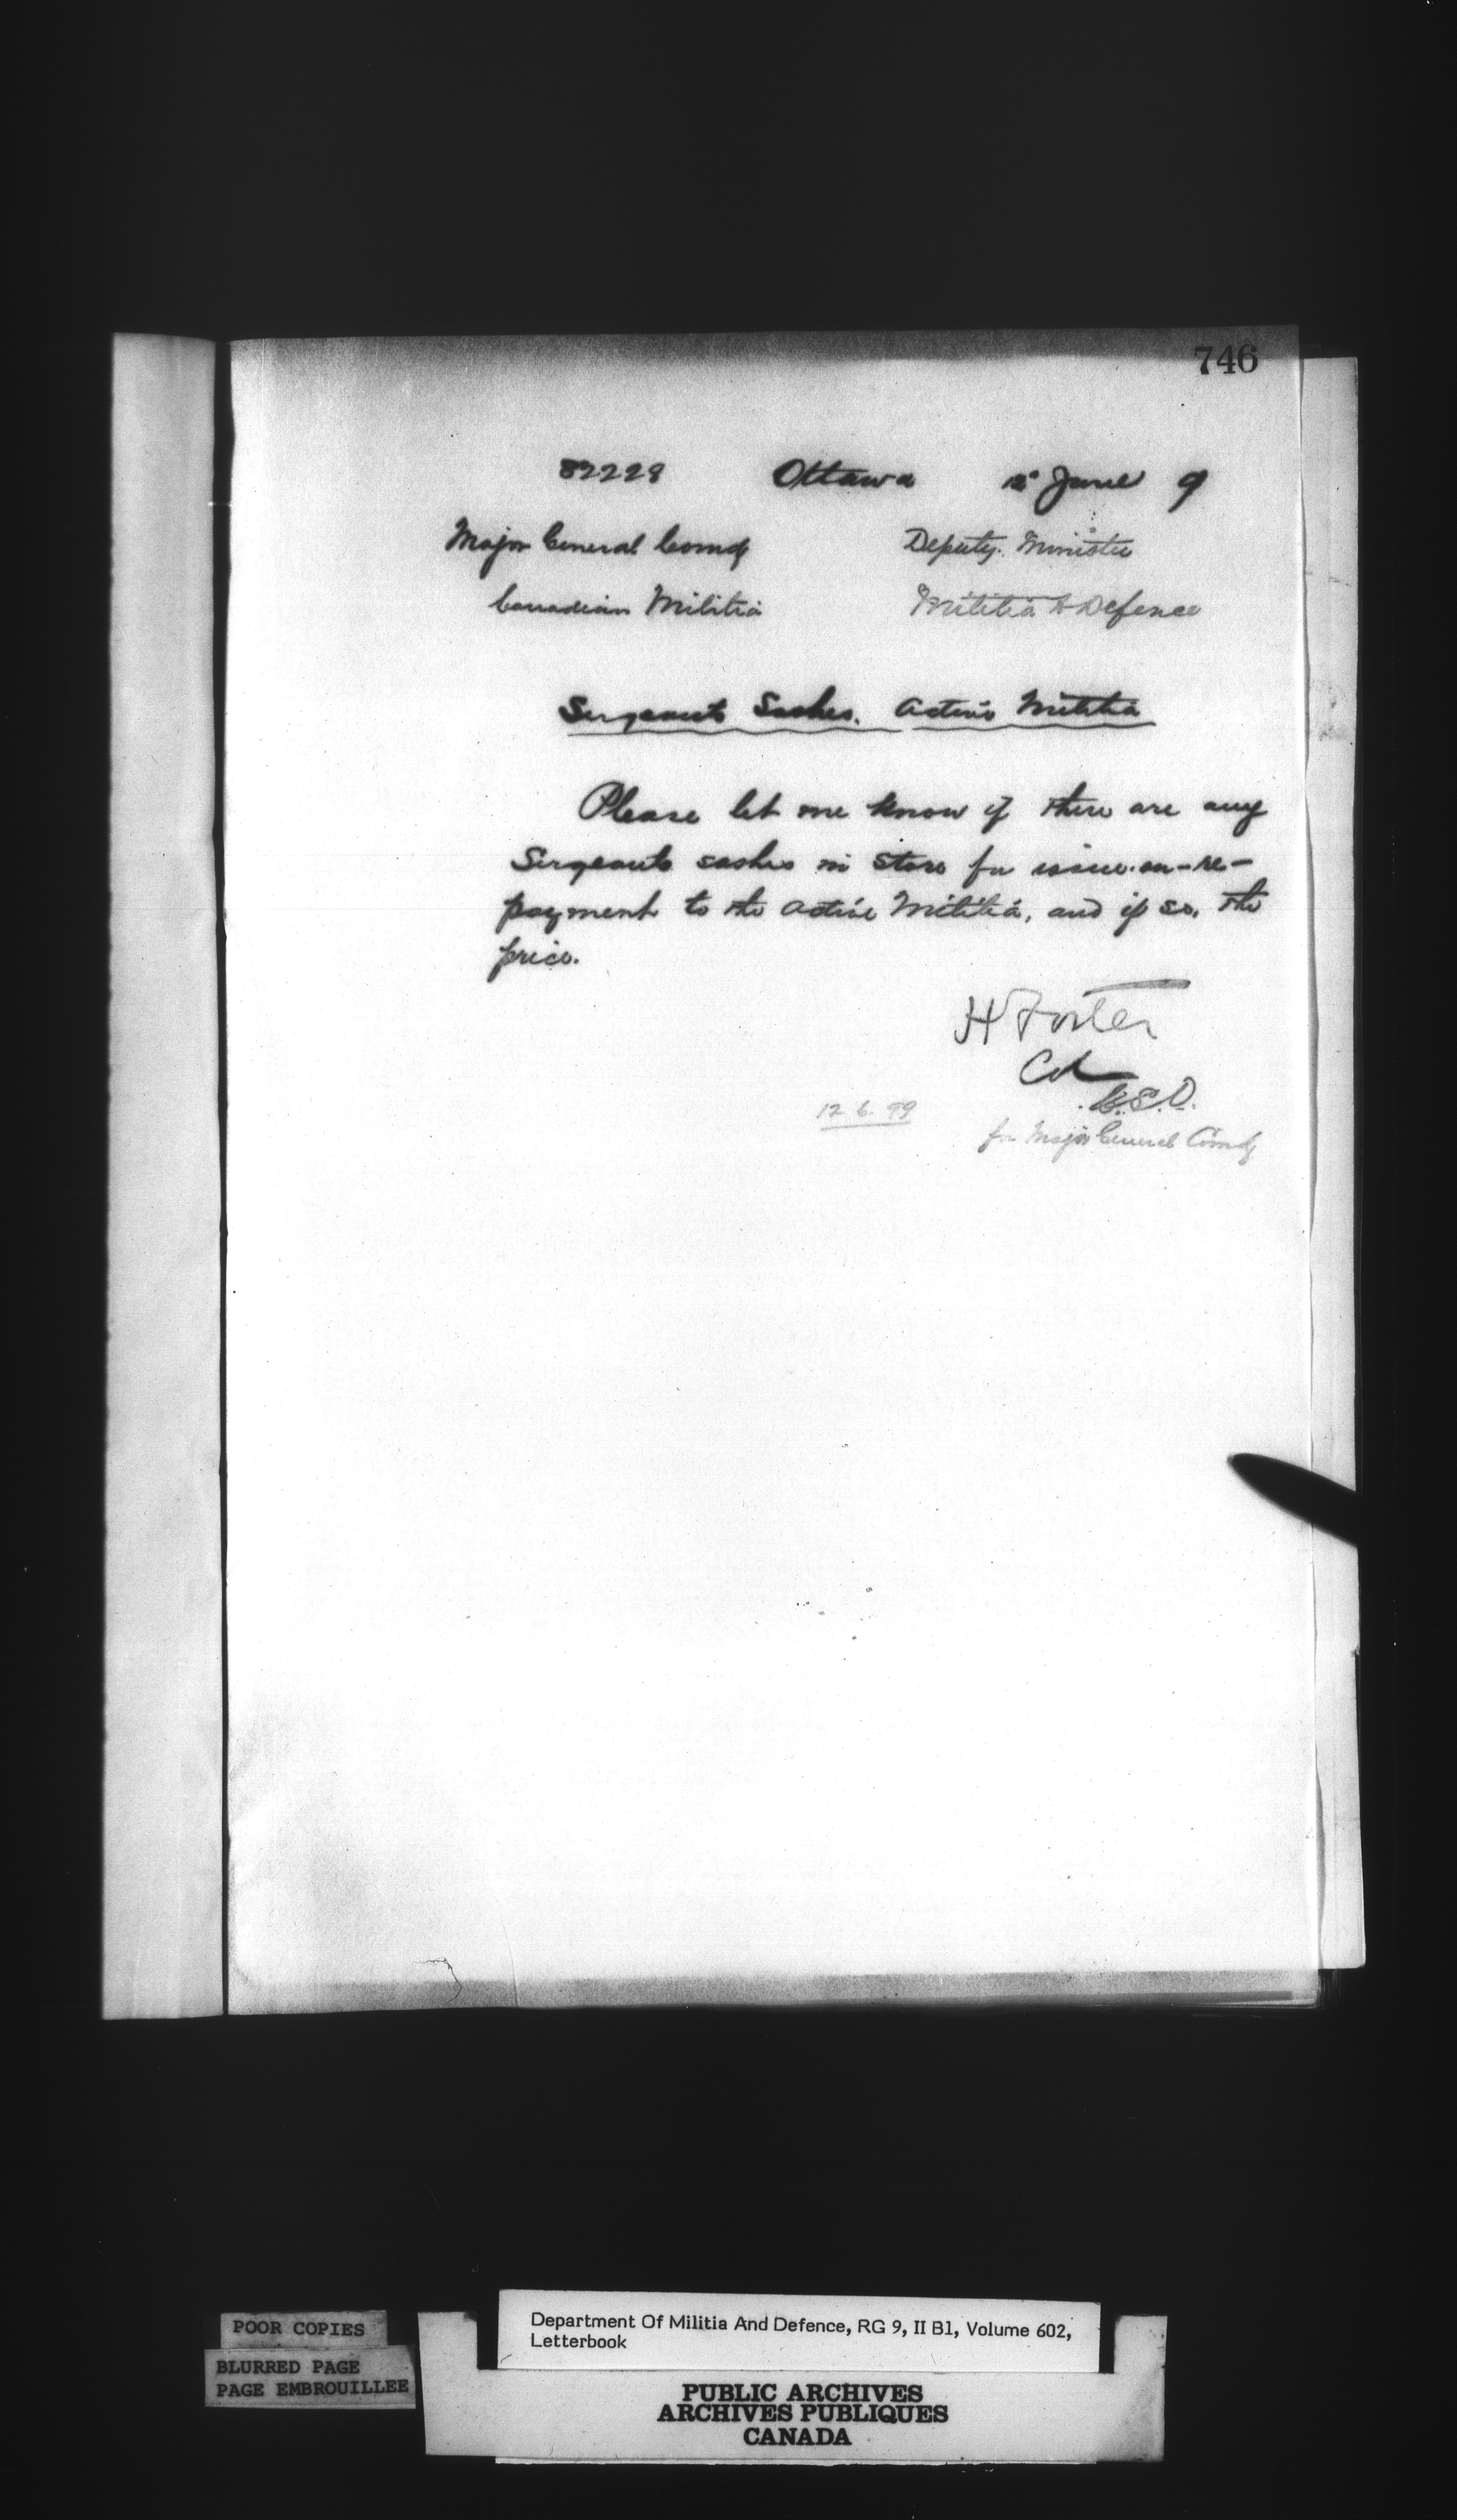 746
82228 Ottawa 12th June 9
Major General Comdg Deputy Minister
Canadian Militia Militia & Defence
Sergeants Sashes. Active Militia
Please let me know if there are any
Sergeants sashes in Store for issue-on-re-
payment to the Active Militia, and if so, the
price.
H Foster
Col
C.S.O.
12 6 99
for Major General Comdg
POOR COPIES
BLURRED PAGE
PAGE EMBROUILLEE
Department Of Militia And Defence, RG 9, II B1, Volume 602,
Letterbook
PUBLIC ARCHIVES
ARCHIVES PUBLIQUES
CANADA